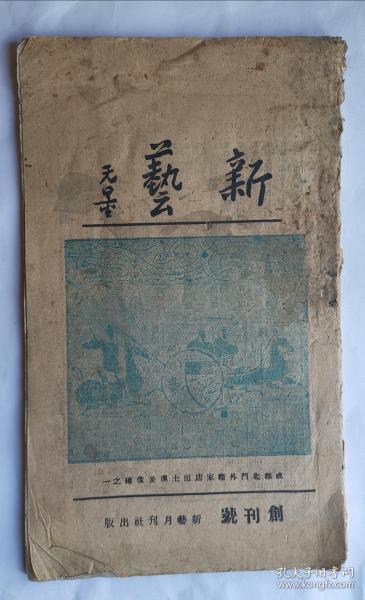 新藝
无量
成都北門外羊家店出土漢畫像磚之一
創刊號 新藝月刊社出版
孔夫子旧书网
www.kongfz.com